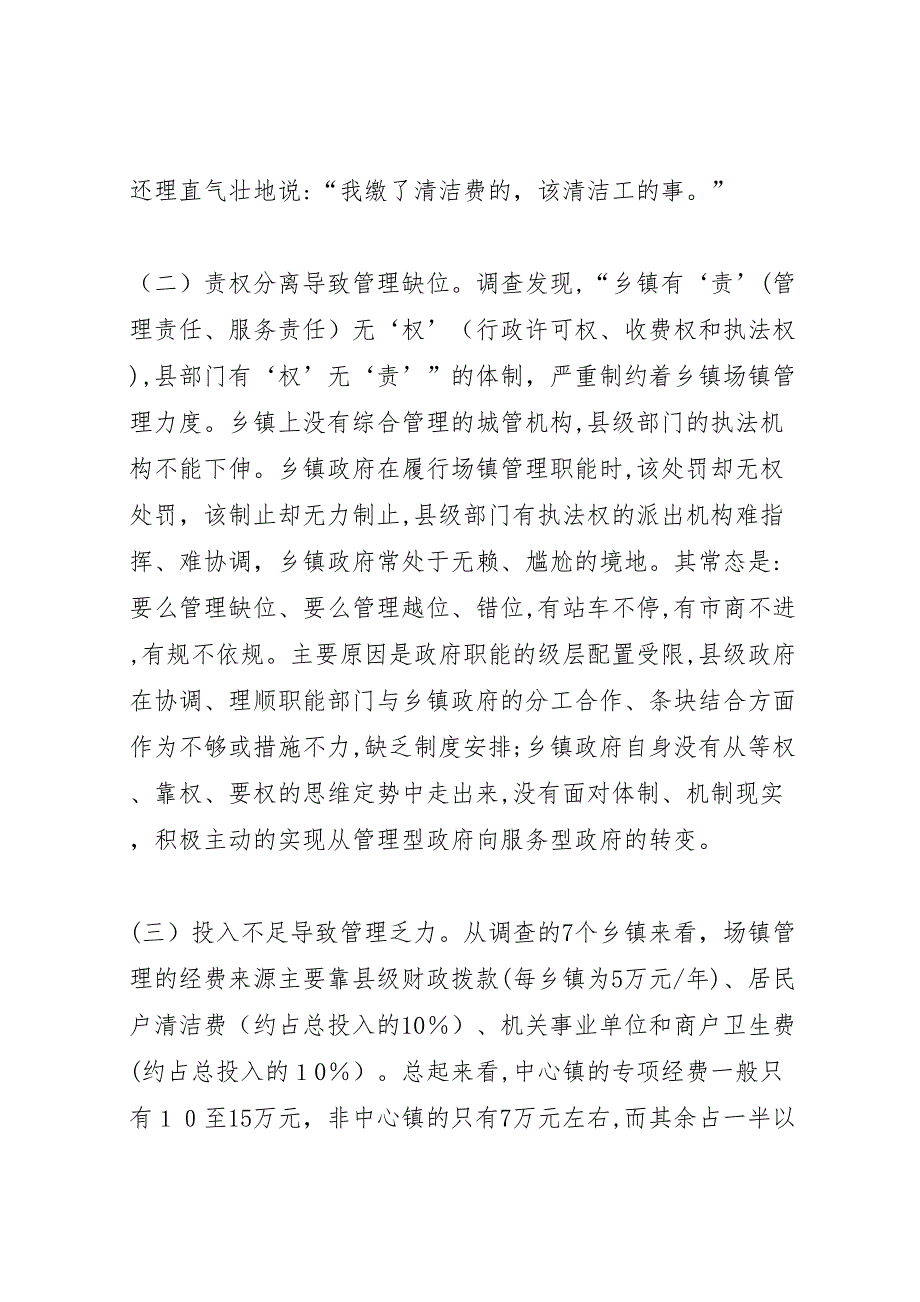 还理直气壮地说:“我缴了清洁费的，该清洁工的事。”
（二）责权分离导致管理缺位。调查发现,“乡镇有‘责’(管
理责任、服务责任）无‘权’（行政许可权、收费权和执法权
),县部门有‘权’无‘责’”的体制，严重制约着乡镇场镇管
理力度。乡镇上没有综合管理的城管机构,县级部门的执法机
构不能下伸。乡镇政府在履行场镇管理职能时,该处罚却无权
处罚，该制止却无力制止,县级部门有执法权的派出机构难指
挥、难协调，乡镇政府常处于无赖、尴尬的境地。其常态是:
要么管理缺位、要么管理越位、错位,有站车不停,有市商不进
,有规不依规。主要原因是政府职能的级层配置受限,县级政府
在协调、理顺职能部门与乡镇政府的分工合作、条块结合方面
作为不够或措施不力,缺乏制度安排;乡镇政府自身没有从等权
、靠权、要权的思维定势中走出来,没有面对体制、机制现实
，积极主动的实现从管理型政府向服务型政府的转变。
(三）投入不足导致管理乏力。从调查的7个乡镇来看，场镇管
理的经费来源主要靠县级财政拨款(每乡镇为5万元/年)、居民
户清洁费（约占总投入的10%）、机关事业单位和商户卫生费
(约占总投入的１０％）。总起来看,中心镇的专项经费一般只
有１０至15万元，非中心镇的只有7万元左右,而其余占一半以